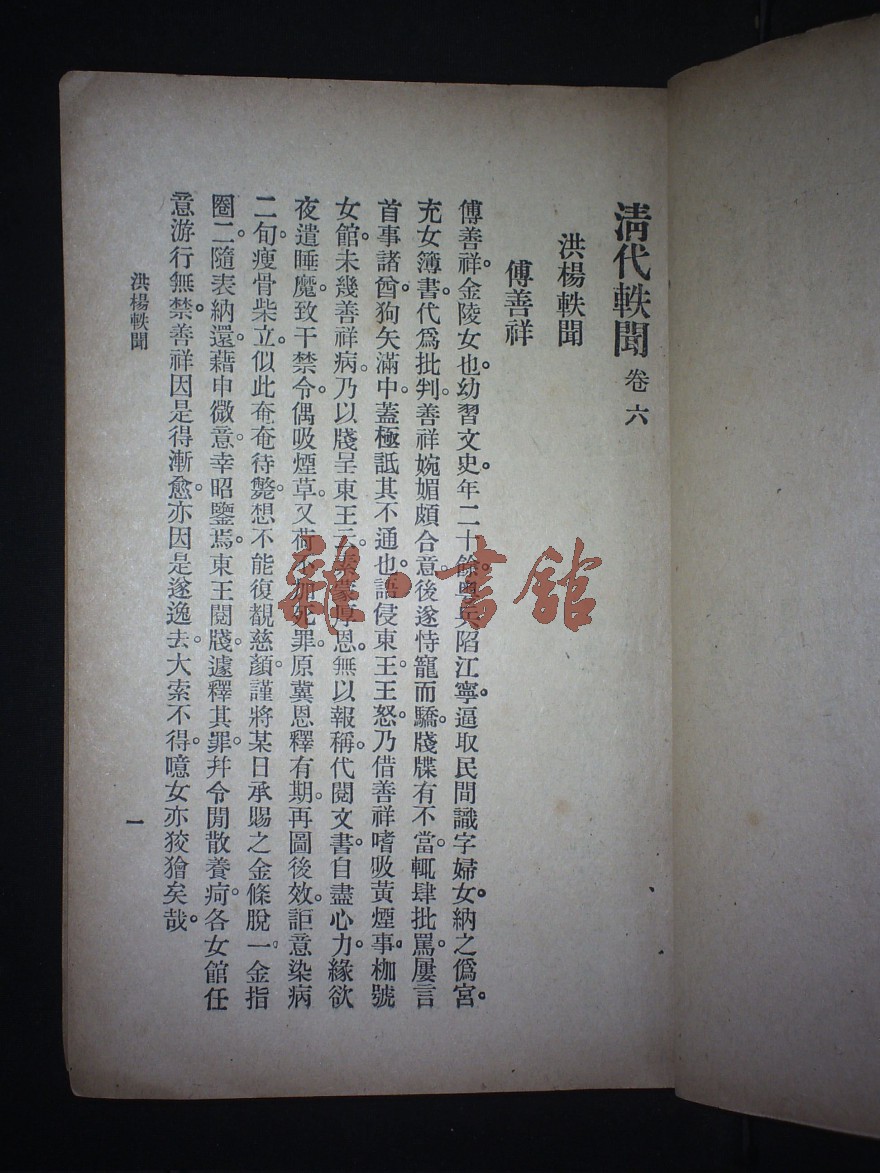 清代軼聞 卷六
洪楊軼聞
傅善祥
傅善祥。金陵女也。幼習文史。年二十餘。粵
陷江寧。逼取民間識字婦女。納之僞宮。
充女簿書。代爲批判。善祥婉媚頗合意。後遂恃寵而驕。牋牒有不當。輒肆批罵。屢言
首事諸酋。狗矢滿中。蓋極詆其不通也。語侵東王。王怒。乃借善祥嗜吸黃煙事。枷號
女館。未幾善祥病。乃以牋呈東王云。素蒙厚恩。無以報稱。代閱文書。自盡心力。緣欲
夜遣睡魔。致干禁令。偶吸煙草。又荷不加死罪。原冀恩釋有期。再圖後效。詎意染病
二旬。瘦骨柴立。似此奄奄待斃。想不能復覩慈顏。謹將某日承賜之金條脫一。金指
圈二。隨表納還。藉申微意。幸昭鑒焉。東王閱牋。遽釋其罪。幷令閒散養疴。各女館任
意游行無禁。善祥因是得漸愈。亦因是遂逸去。大索不得。噫女亦狡獪矣哉。
洪楊軼聞
一
雜·書館